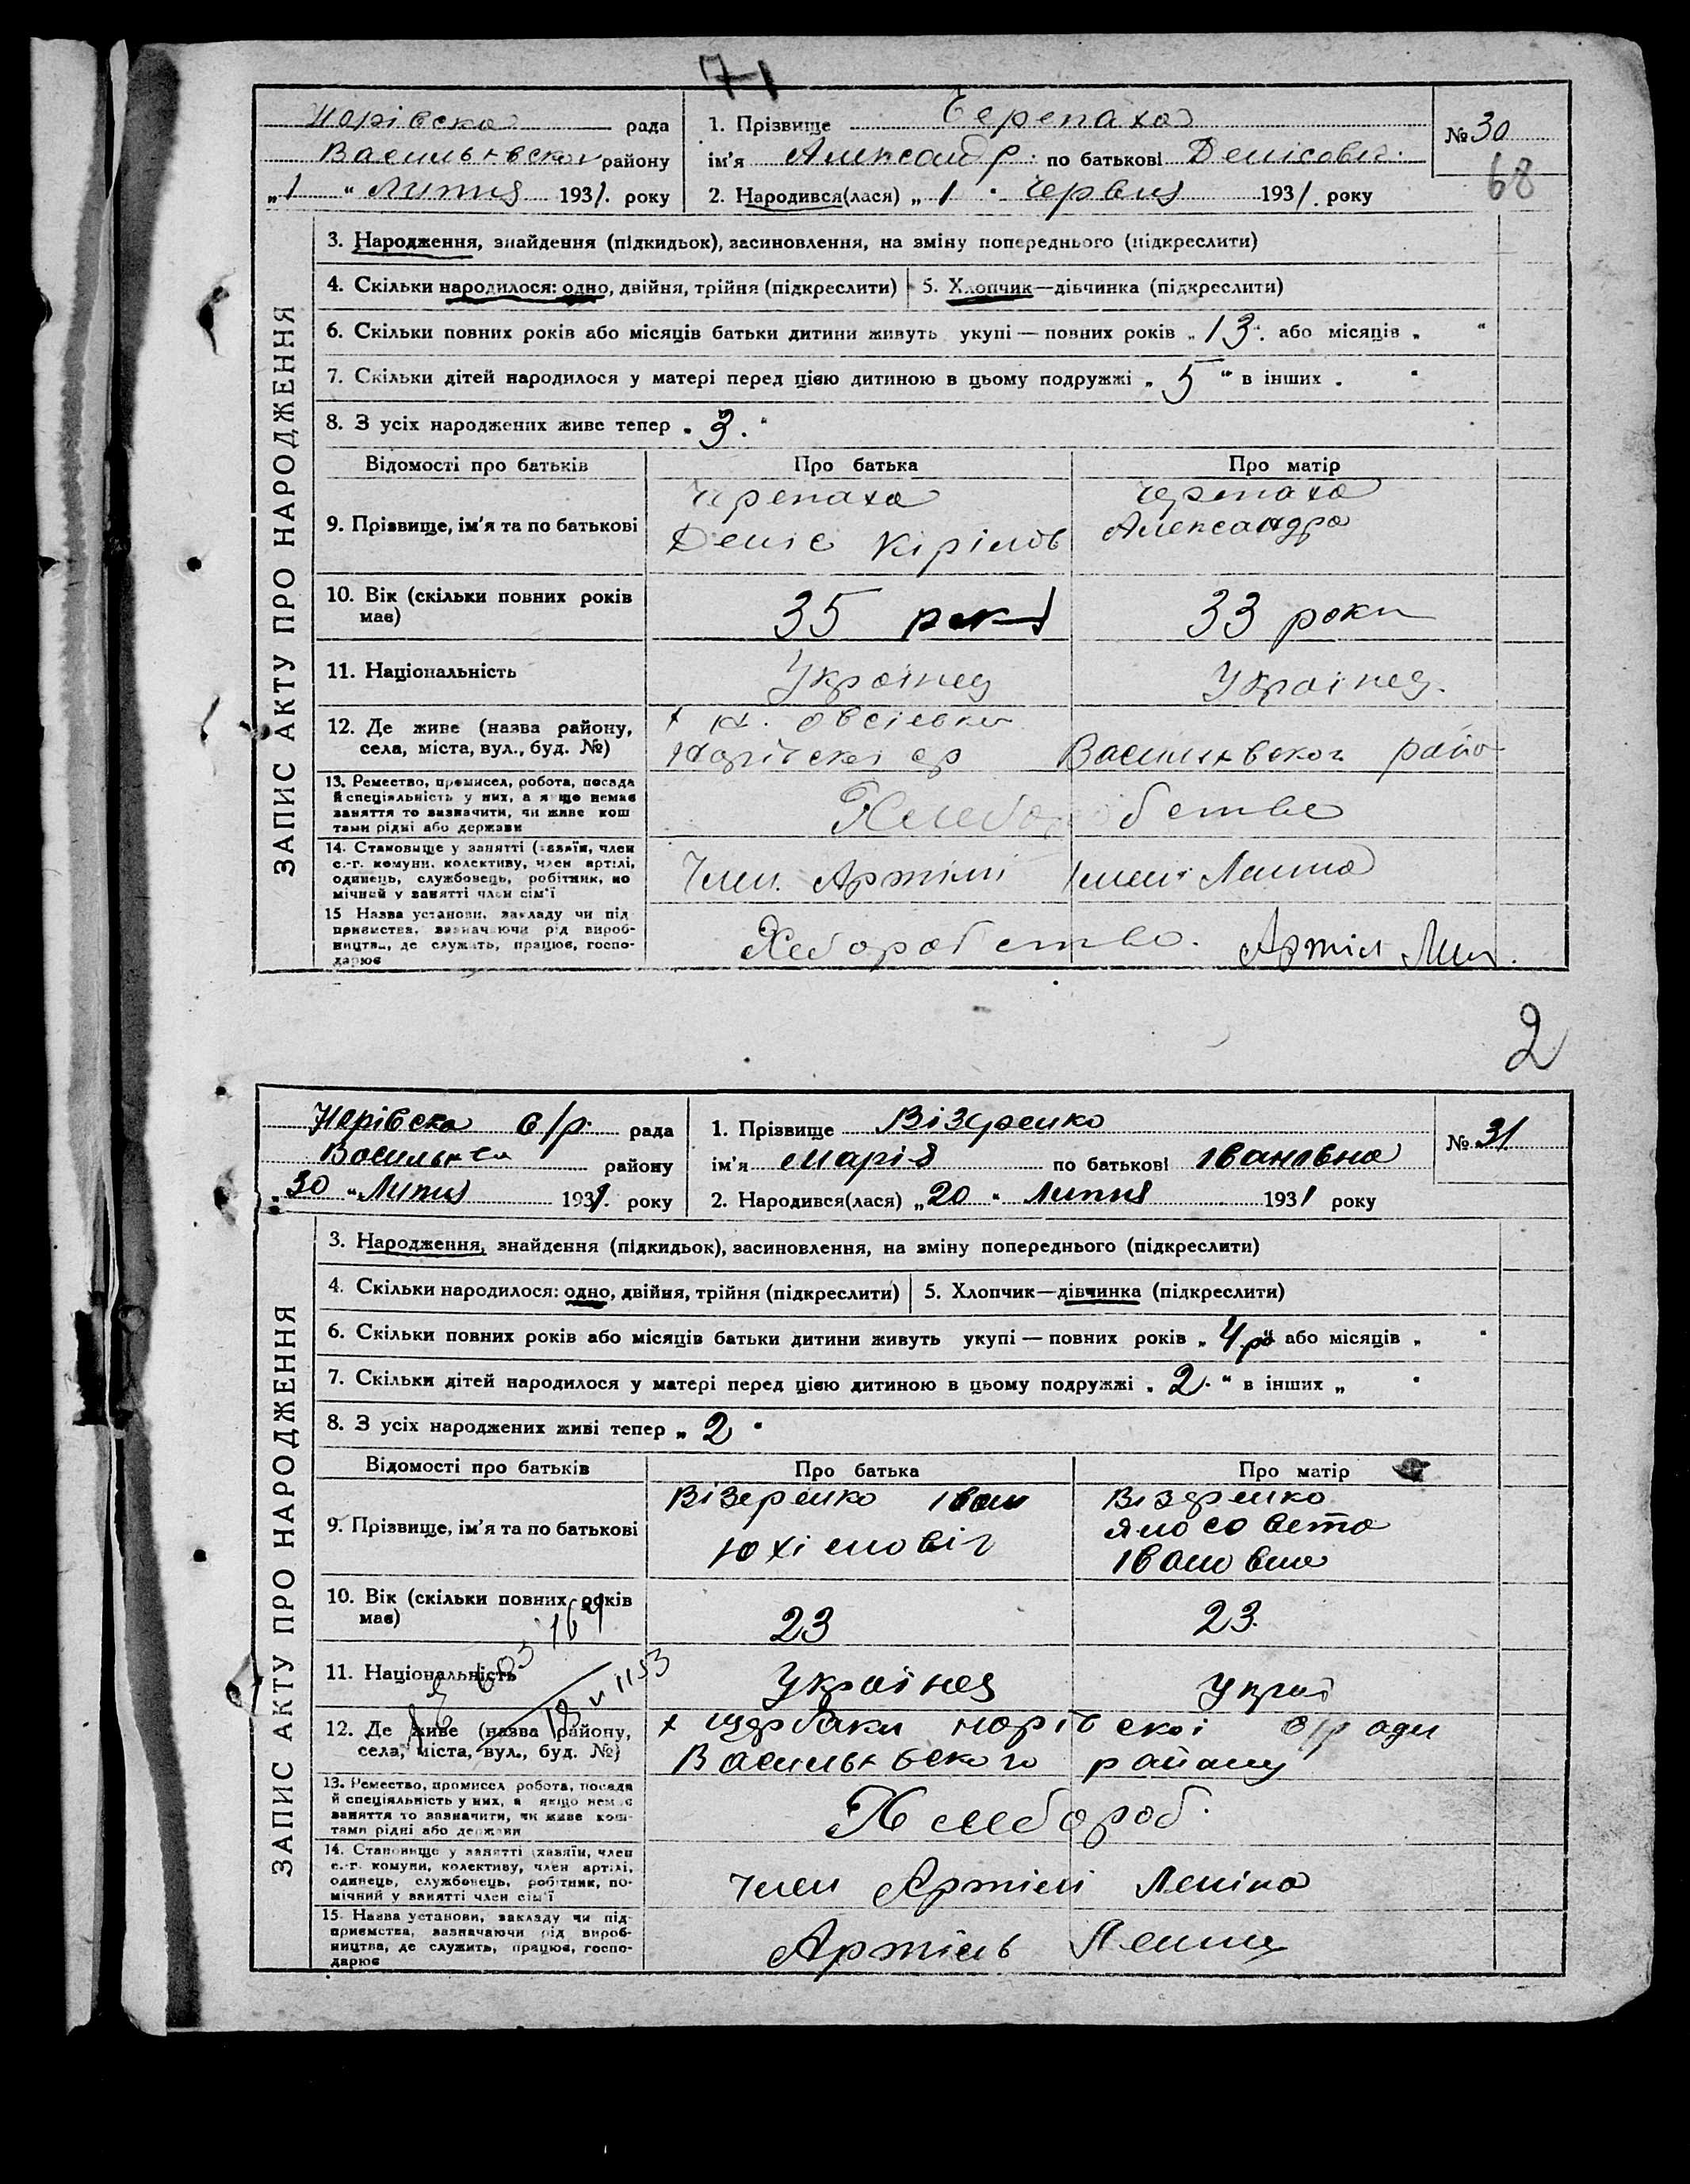 71
Норівска рада
Васильквскоі району
„1 “ Липня 1931. року
1. Прізвище Черепаха
ім’я Александр. по батькові Денісович.
2. Народився(лася) „ 1 “ червня 1931. року
№ 30
68
ЗАПИС АКТУ ПРО НАРОДЖЕННЯ
3. Народження, знайдення (підкидьок), засиновлення, на зміну попереднього (підкреслити)
4. Скільки народилося: одно, двійня, трійня (підкреслити) 5. Хлопчик—дівчинка (підкреслити)
6. Скільки повних років або місяців батьки дитини живуть укупі — повних років „ 13. або місяців „ “
7. Скільки дітей народилося у матері перед цією дитиною в цьому подружжі „ 5 “ в інших „ “
8. З усіх народжених живе тепер „ 3. “
Відомості про батьків Про батька Про матір
9. Прізвище, ім’я та по батькові
Черепаха
Деніс Кірілов
Черепаха
Александра
10. Вік (скільки повних років
має)
35 рокі 33 роки
11. Національність Українец Українец.
12. Де живе (назва району,
села, міста, вул., буд. №)
х
Норівскоі ср Васильквского райо
13. Ремество, промисел, робота, посада
й спеціяльність у них, а якщо немає
заняття то зазначити, чи живе кош
тами рідні або держави
Хлеборобство
14. Становище у занятті (хазяїн, член
с.-г. комуни, колективу, член артілі,
одинець, службовець, робітник, по
мічний у занятті член сім’ї
Член. Артілі імені Леніна
15 Назва установи, закладу чи під
приємства, зазначаючи рід вироб-
ництва, де служить, працює, госпо-
дарює
Хлеборобство. Артіл Лен.
2
Норівска с/р. рада
району
„ 30 “ Липня 1931. року
1. Прізвище Візеренко
ім’я Марія по батькові Івановна
2. Народився(лася) „ 20 “ Липня 1931 року
№ 31
ЗАПИС АКТУ ПРО НАРОДЖЕННЯ
3. Народження, знайдення (підкидьок), засиновлення, на зміну попереднього (підкреслити)
4. Скільки народилося: одно, двійня, трійня (підкреслити) 5. Хлопчик—дівчинка (підкреслити)
6. Скільки повних років або місяців батьки дитини живуть укупі — повних років „ 4 ро або місяців „ “
7. Скільки дітей народилося у матері перед цією дитиною в цьому подружжі „ 2. “ в інших „ “
8. З усіх народжених живі тепер „ 2 “
Відомості про батьків Про батька Про матір
9. Прізвище, ім’я та по батькові
Візеренко Іван
Юхімовіч
Візеренко
Івановна
10. Вік (скільки повних років
має)
23 23.
11. Національність Українец Украі
12. Де живе (назва району,
села, міста, вул., буд. №)
х Щербаки норівскоі с/ради
Васильквского району
13. Ремество, промисел робота, посада
й спеціяльність у них, а якщо немає
заняття то зазначити, чи живе кош-
тами рідні або держави
Хлебороб.
14. Становище у занятті (хазяїн, член
с.-г. комуни, колективу, член артілі,
одинець, службовець, робітник, по-
мічний у занятті член сім’ї
член Артілі Леніна
15. Назва установи, закладу чи під-
приємства, зазначаючи рід вироб-
ництва, де служить, працює, госпо-
дарює
Артіль Леніна